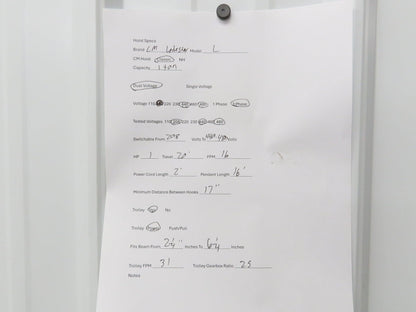 Hoist Specs
Brand CM Lodestar Model L
CM Hoist Classic NH
Capacity 1 ton
Dual Voltage Single Voltage
Voltage 110 220 230 1 Phase 3 Phase
Tested Voltages 110 208 220 230 440 460 480
Switchable From 208 Volts to Volts
HP 1 Travel 20' FPM 16
Power Cord Length 2' Pendant Length 16'
Minimum Distance Between Hooks 17"
Trolley Yes No
Trolley Power Push/Pull
Fits Beam From Inches To Inches
Trolley FPM 31 Trolley Gearbox Ratio 25